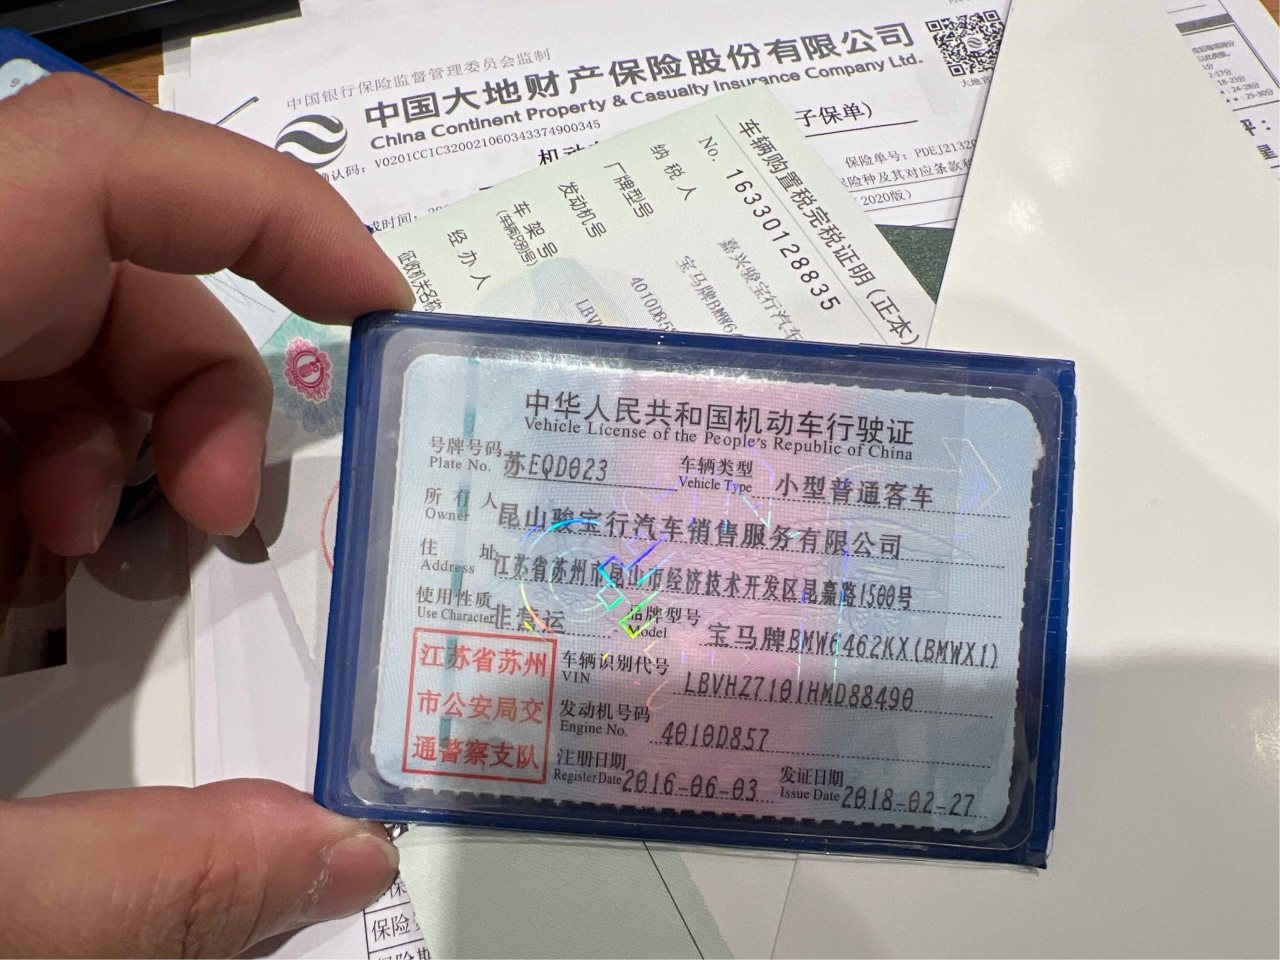 中国银行保险监督管理委员会监制
中国大地财产保险股份有限公司
China Continent Property & Casualty Insurance Company Ltd.
确认码：V0201CCIC320021060343374900345
子保单）
大地官
保险单号：PDEJ2132
险种及其对应条款
2020版）
车辆购置税完税证明（正本）
No. 16330128835
纳税人
嘉兴骏宝行汽车
厂牌型号
宝马牌BMW6
发动机号
4010D85
车架号
(车辆识别号)
LBV
经办人
征收机关名称
中华人民共和国机动车行驶证
Vehicle License of the People's Republic of China
号牌号码 苏EQD023 车辆类型 小型普通客车
Plate No. Vehicle Type
所有人 昆山骏宝行汽车销售服务有限公司
Owner
住址 江苏省苏州市昆山市经济技术开发区昆嘉路1500号
Address
使用性质 非营运 品牌型号 宝马牌BMW6462KX(BMWX1)
Use Character Model
江苏省苏州
市公安局交
通警察支队
车辆识别代号 LBVHZ7101HMD88490
VIN
发动机号码 4010D857
Engine No.
注册日期 2016-06-03 发证日期 2018-02-27
Register Date Issue Date
保险